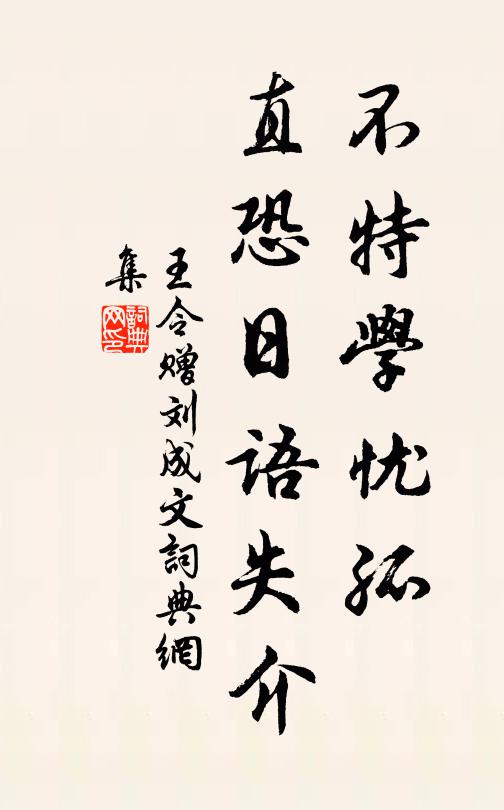 不特學忧孤
直恐日語失介
王令赠刘成文詞典網
集
詞典
网印